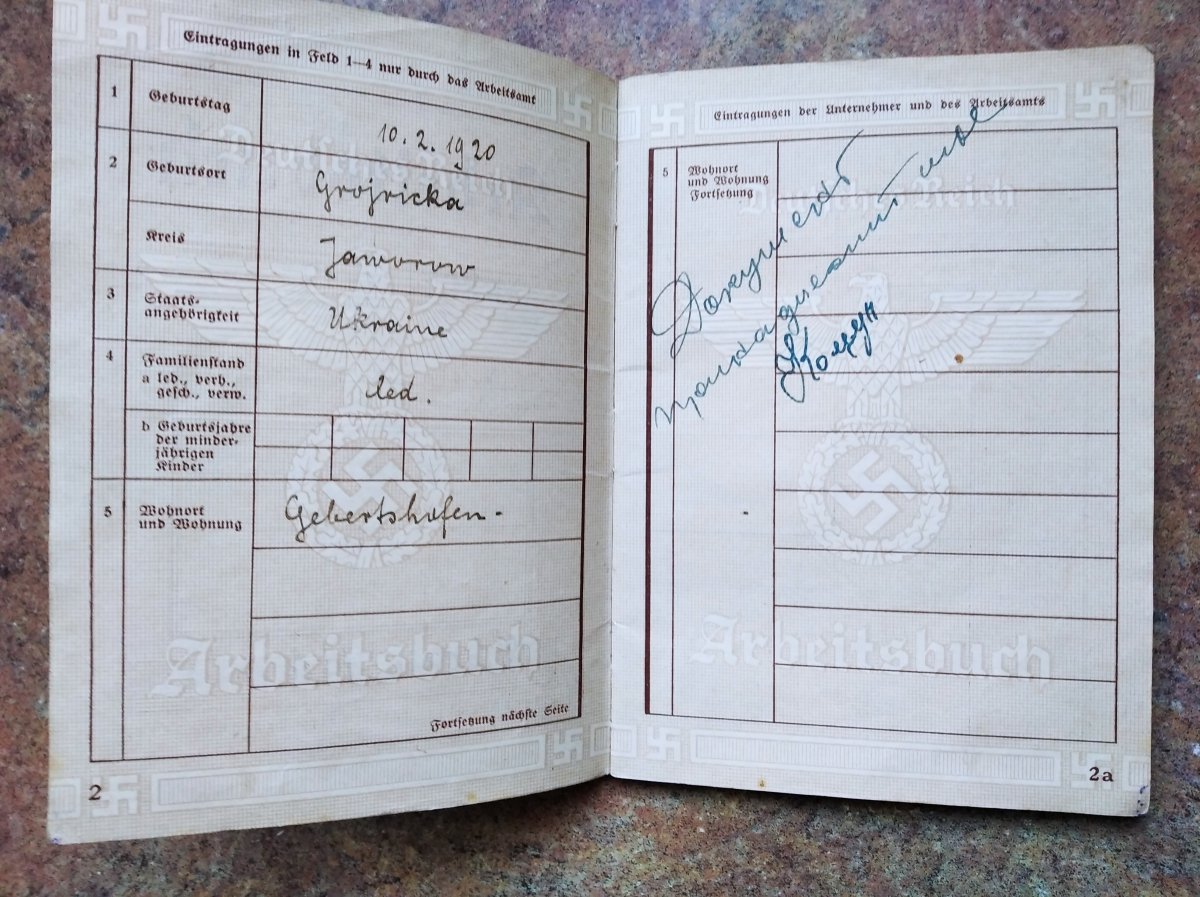 Eintragungen in Feld 1—4 nur durch das Arbeitsamt
1 Geburtstag 10.2.1920
2 Geburtsort Grojricka
Kreis Jaworow
3 Staats-
angehörigkeit Ukraine
4 Familienstand
a led., verh.,
gesch., verw. led.
b Geburtsjahre
der minder-
jährigen
Kinder
5 Wohnort
und Wohnung Gebertshofen-
Fortsetzung nächste Seite
2
Deutsches Reich
Arbeitsbuch
Eintragungen der Unternehmer und des Arbeitsamts
5 Wohnort
und Wohnung
Fortsetzung
Документ
2a
Deutsches Reich
Arbeitsbuch